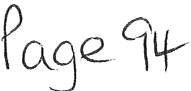 Page 94